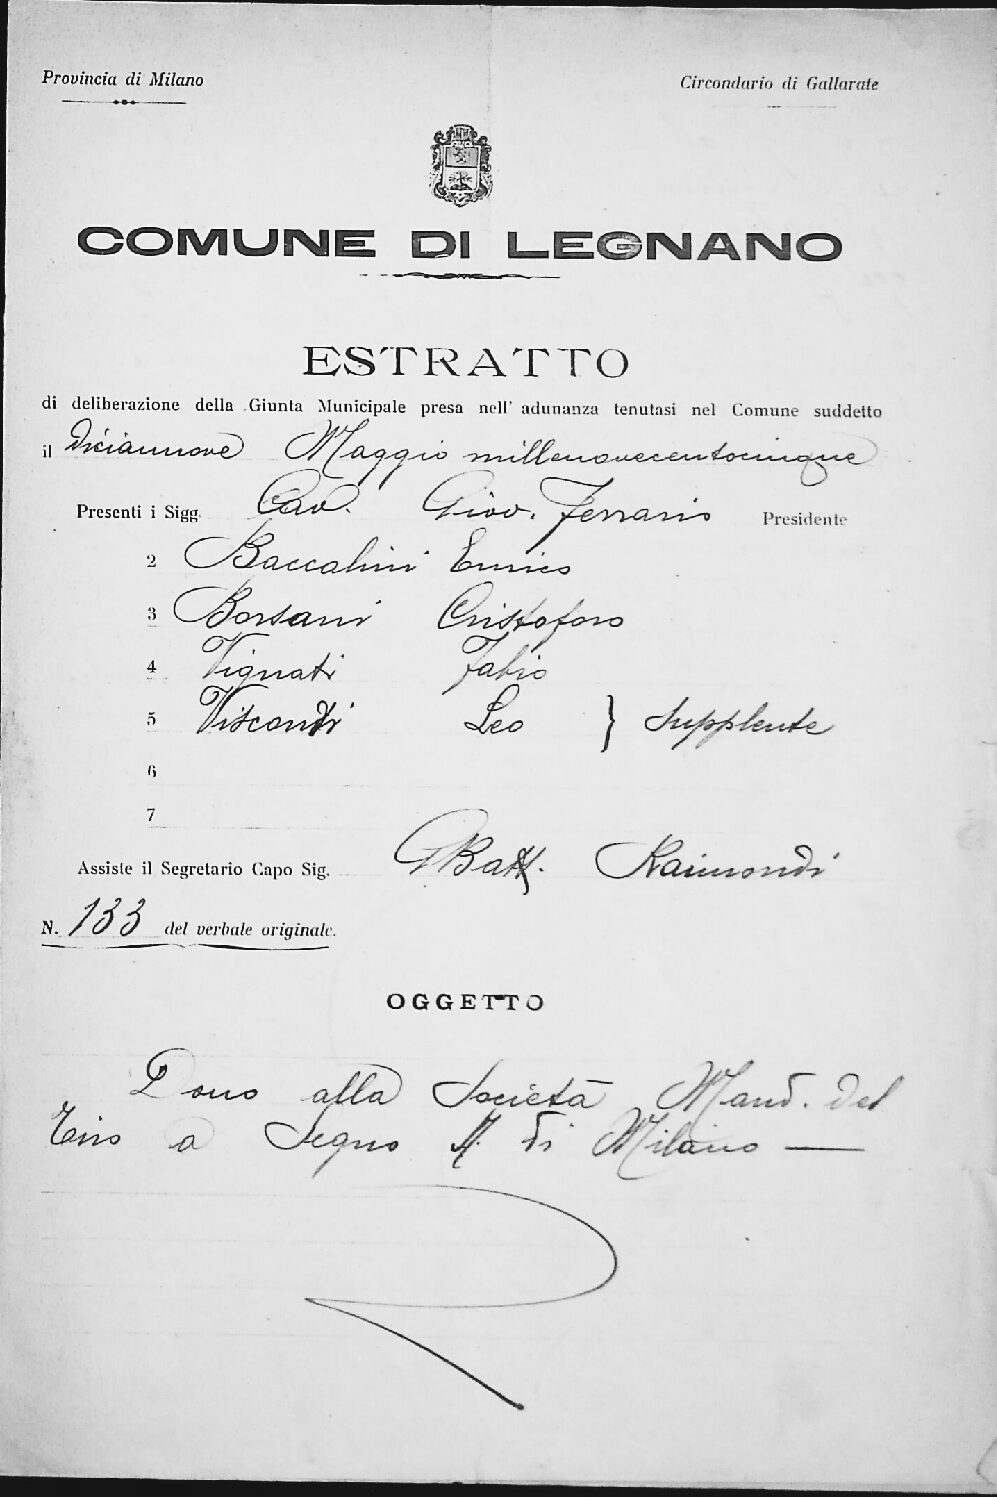 Provincia di Milano
Circondario di Gallarate
COMUNE DI LEGNANO
ESTRATTO
di deliberazione della Giunta Municipale presa nell' adunanza tenutasi nel Comune suddetto
il Diciannove Maggio millenovecentocinque
Presenti i Sigg. Cav. Giov. Ferrario Presidente
2 Baccalini Enrico
3 Borsani Cristoforo
4 Vignati Fabio
5 Visconti Leo } Supplente
6
7
Assiste il Segretario Capo Sig. GBatt. Raimondi
N. 133 del verbale originale.
OGGETTO
Dono alla Società Mand. del
Tiro a Segno N. di Milano —